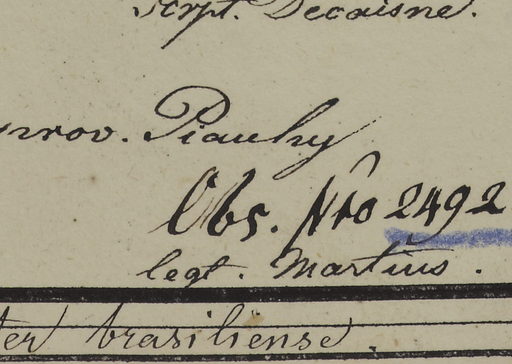 Script. Decaisne.
prov. Piauhy
Obs. Nro 2492
legt. Martius.
ter brasiliense